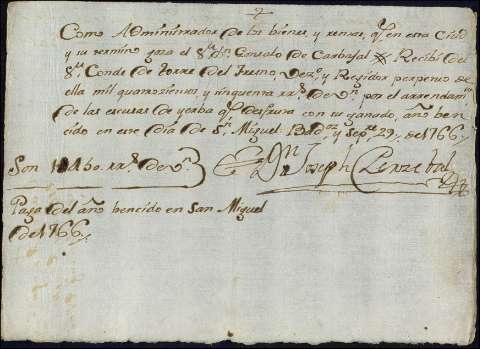 Como Administrador de los bienes, y rentas, qe. en esta Ciud.
y su termino goza el Sr. Dn. Gonsalo de Carbajal Recibi del
Sr. Conde de Torre del Fresno, Vezo. y Rejidor perpetuo de
ella mil quatrozientos, y sinquenta rrs. de vn. por el arrendamto.
de las escusas de yerba qe. desfruta con su ganado, año ben
cido en este dia de Sn. Miguel: Badoz. y Sepre. 29,, de 1766,,
Son 1U450. rrs. de vn.
Dn. Joseph
Pago del año bencido en San Miguel
de 1766,,